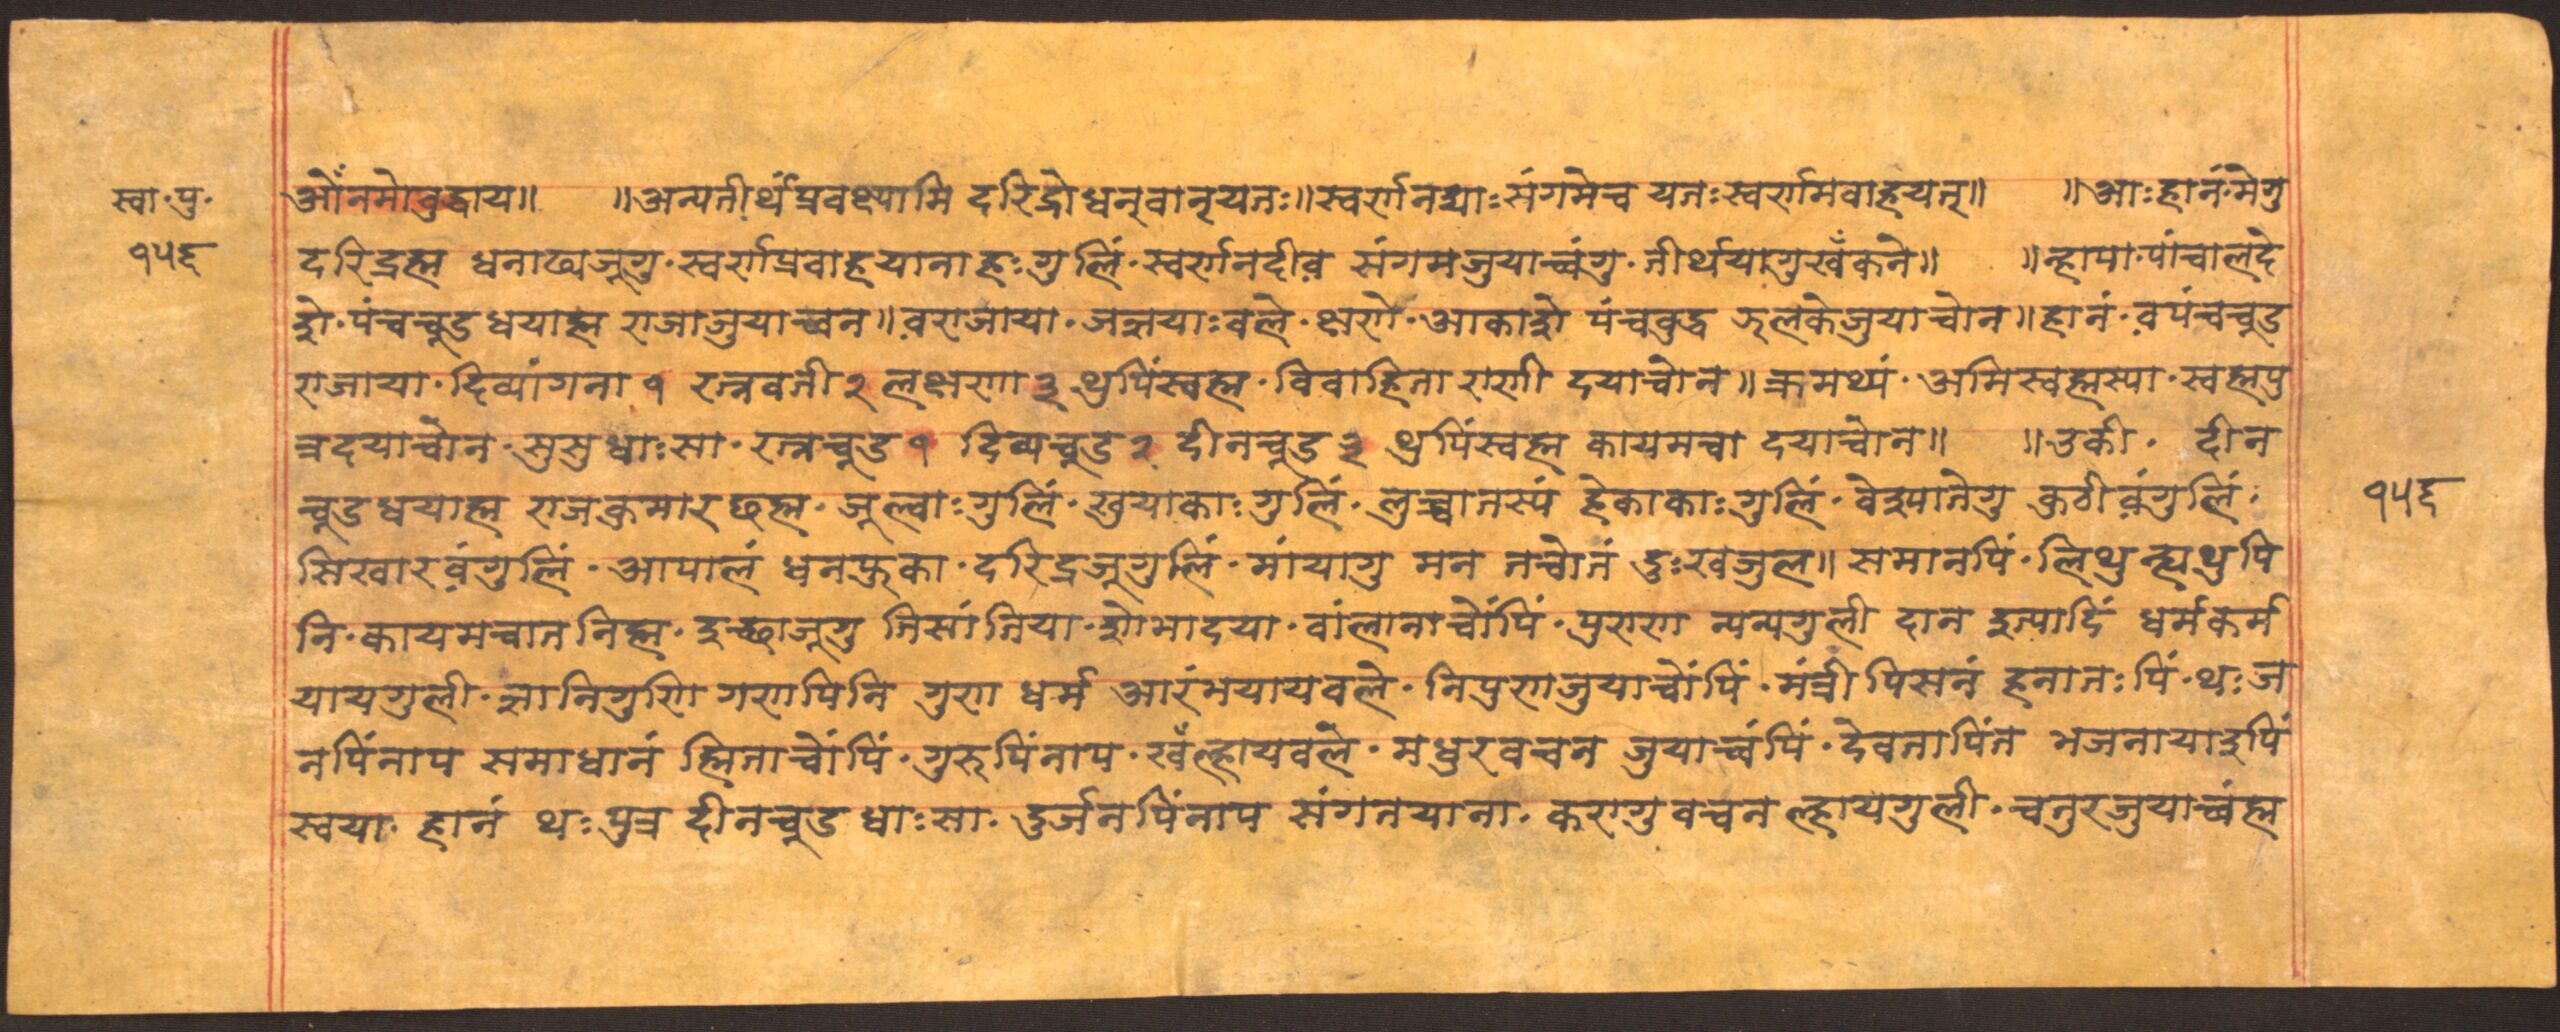 स्वा·पु·
१५६
ओँनमोबुद्धाय॥ ॥अन्यतीर्थंप्रवक्ष्यामि दरिद्रोधनवानृयतः॥स्वर्णानद्याःसंगमेच यतःस्वर्णामवाहयत्॥ ॥आःहानं·मेगु
दरिद्रह्म धनाढ्यजूगु·स्वर्णप्रवाहयानाहःगुलिं·स्वर्णनदीव संगमजुयाच्वंगु·तीर्थयागुखँकने॥ ॥न्हापा·पांचालदे
शे·पंचचूडधयाह्म राजाजुयाच्वन॥वराजाया·जन्मयाःवले·क्षणे·आकाशे पंचबुद्ध झलकेजुयाचोन॥हानं·वपंचचूड
राजाया·दिव्यांगना १ रत्नवती २ लक्षणा ३ थुपिंस्वह्म·विवाहिता राणी दयाचोन॥क्रमथ्यं·अमिस्वह्मस्या·स्वह्मपु
त्रदयाचोन·सुसुधाःसा·रत्नचूड १ दिव्यचूड २ दीनचूड ३ थुपिंस्वह्म कायमचा दयाचोन॥ ॥उकी· दीन
चूडधयाह्म राजकुमारछह्म·जूल्वाःगुलिं·खुयाकाःगुलिं·लुच्चातस्यं हेकाकाःगुलिं·वेश्यातेगु कुठीवंगुलिं·
सिखारवंगुलिं·आपालं धनफुका·दरिद्रजूगुलिं·मांयागु मन तचोतं दुःखजुल॥समानपिं·लिथुन्ह्यथुपि
नि·कायमचातनिह्म·इच्छाजूगु तिसांतिया·शोभादया·वांलानाचोंपिं·पुराण न्यन्यगुली दान इत्यादिं धर्मकर्म
यायगुली·ज्ञानिगुणि गणपिनि गुण धर्म आरंभयायवले·निपुणजुयाचोंपिं·मंत्री पिसनं हनातःपिं·थःज
नपिंनाप समाधानं ह्मिताचोंपिं·गुरुपिंनाप·खँल्हायवले·मधुरवचन जुयाच्वंपिं·देवतापिंत भजनायाइपिं
स्वया·हानं थःपुत्र दीनचूड धाःसा·दुर्जनपिंनाप संगतयाना·करागुवचन ल्हायगुली·चतुरजुयाच्वंह्म
१५६